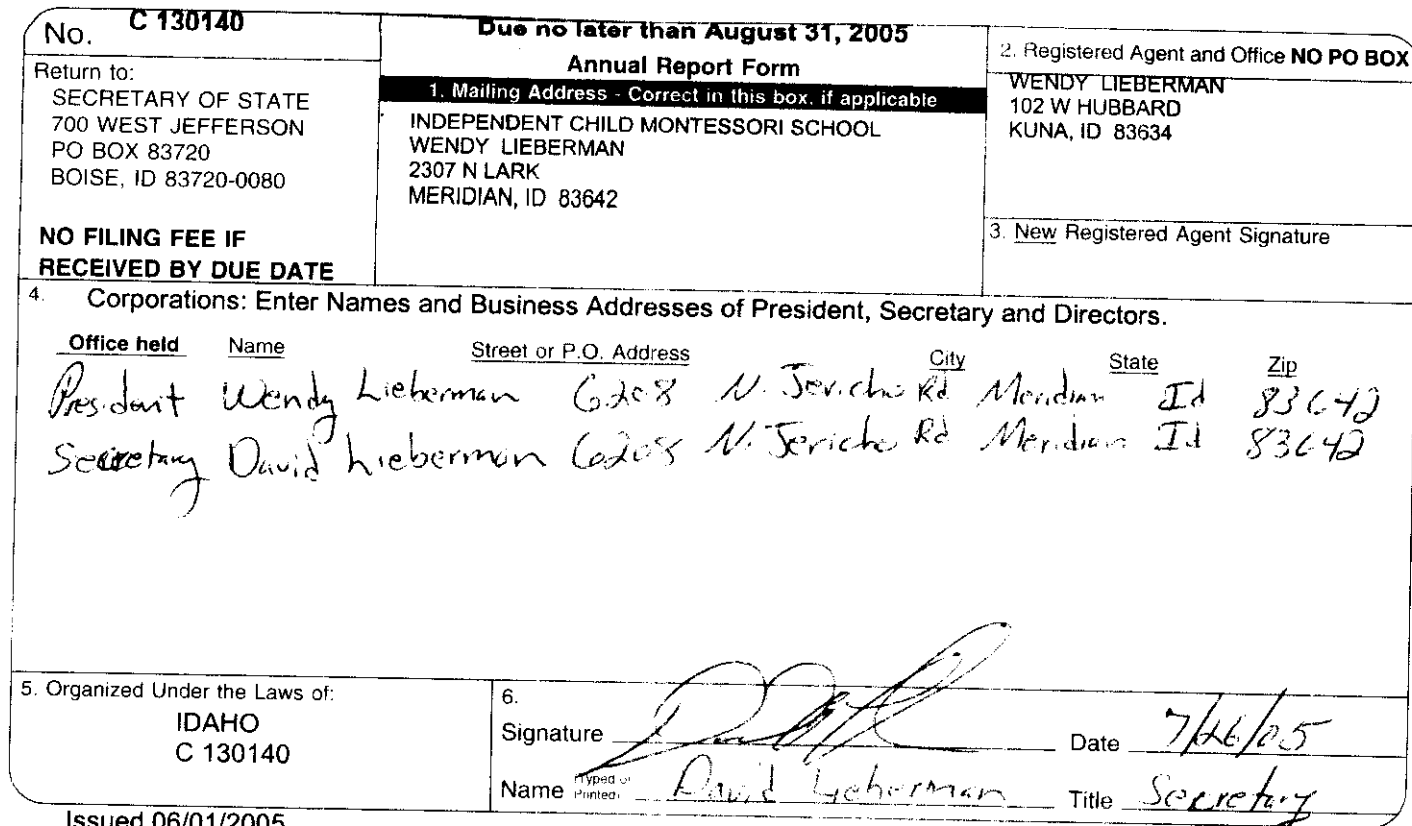 No. C 130140
Return to:
SECRETARY OF STATE
700 WEST JEFFERSON
PO BOX 83720
BOISE, ID 83720-0080
NO FILING FEE IF
RECEIVED BY DUE DATE
Due no later than August 31, 2005
Annual Report Form
1. Mailing Address - Correct in this box, if applicable
INDEPENDENT CHILD MONTESSORI SCHOOL
WENDY LIEBERMAN
2307 N LARK
MERIDIAN, ID 83642
2. Registered Agent and Office NO PO BOX
WENDY LIEBERMAN
102 W HUBBARD
KUNA, ID 83634
3. New Registered Agent Signature
4. Corporations: Enter Names and Business Addresses of President, Secretary and Directors.
Office held Name Street or P.O. Address City State Zip
President Wendy Lieberman 6208 N. Jericho Rd Meridian Id 83642
Secretary David Lieberman 6208 N. Jericho Rd Meridian Id 83642
5. Organized Under the Laws of:
IDAHO
C 130140
6.
Signature Date 7/26/05
Name (Typed or Printed) David Lieberman Title Secretary
Issued 06/01/2005